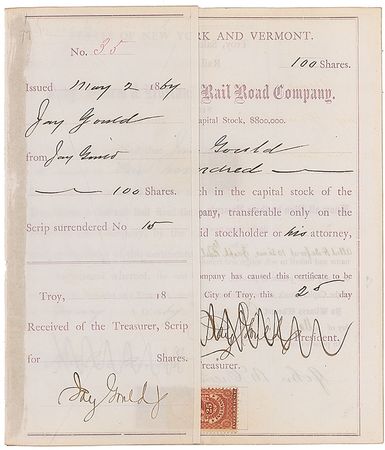 OF NEW YORK AND VERMONT.
No. 35
100 Shares.
Issued May 2 1867
Rail Road Company.
Jay Gould
Capital Stock, $800,000.
from Jay Gould
Gould
hundred
100 Shares.
ch in the capital stock of the
pany, transferable only on the
Scrip surrendered No 15
id stockholder or his attorney,
ompany has caused this certificate to be
Troy, 18
City of Troy, this 25 day
Received of the Treasurer, Scrip
Jay Gould President.
for Shares.
reasurer.
Jay Gould
25